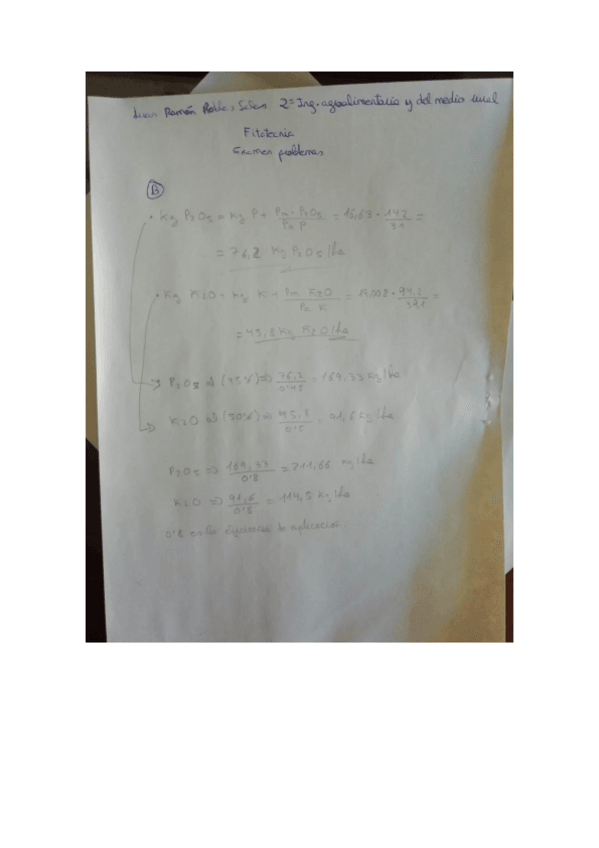 Juan Ramón Robles 2º Ing. agroalimentaria y del medio rural
Fitotecnia
Examen problemas
B
· Kg P2O5 = Kg P * Pm · P2O5 / Pa P = 16,63 · 142 / 31 =
= 76,2 Kg P2O5/ha
· Kg K2O = Kg K * Pm K2O / Pa K = · 94,2 / 39,1 =
= 45,8 Kg K2O/ha
P2O5 al (45%) => 76,2 / 0'45 = 169,33 Kg/ha
K2O al (50%) => 45,8 / 0'5 = 91,6 Kg/ha
P2O5 => 169,33 / 0'8 = 211,66 Kg/ha
K2O => 91,6 / 0'8 = 114,5 Kg/ha
0'8 es la eficiencia de aplicación.